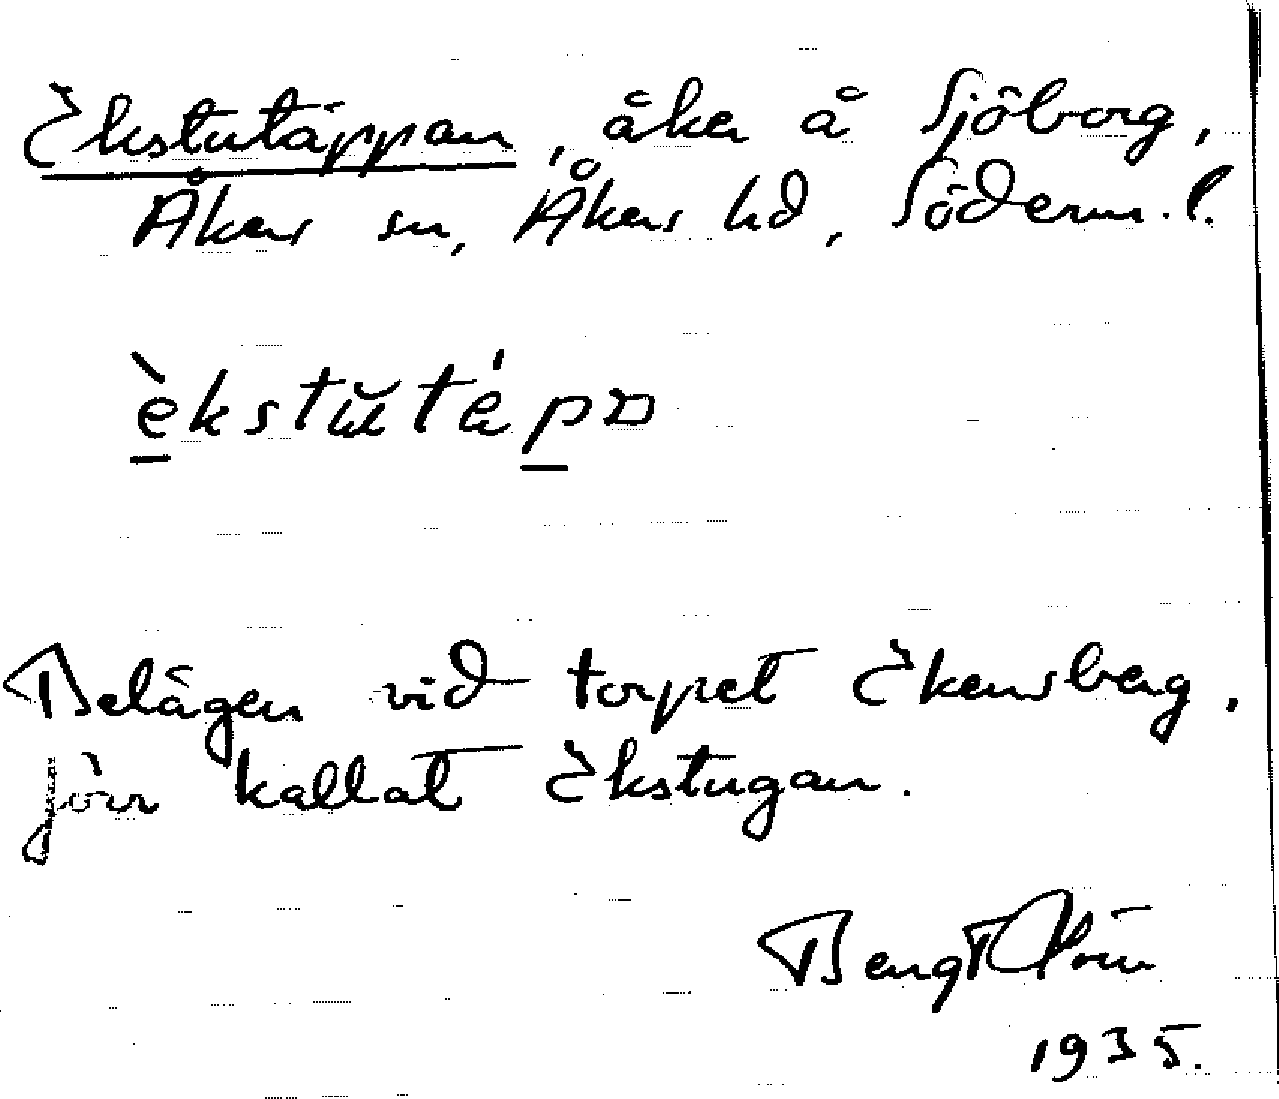 Ekstutäppan, åker å Sjöborg,
Åkers sn, Åkers hd, Söderm.l.
Belägen vid torpet Ekensberg,
förr kallat Ekstugan.
Bengt
1935.